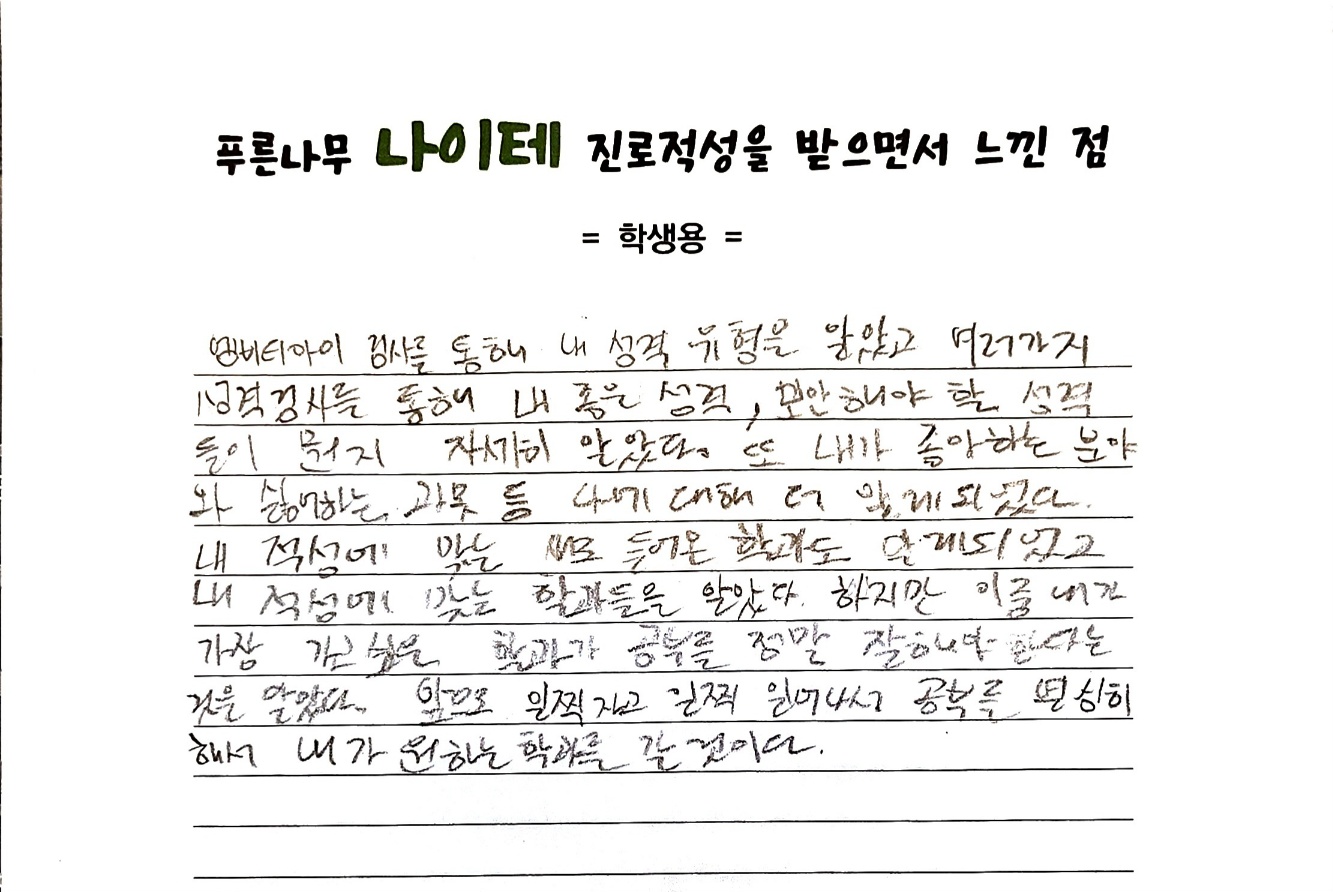 푸른나무 나이테 진로적성을 받으면서 느낀 점
= 학생용 =
엠비티아이 검사를 통해 내 성격 유형을 알았고 여러가지
성격검사를 통해 내 좋은 성격, 보안해야 할 성격
들이 뭔지 자세히 알았다. 또 내가 좋아하는 분야
와 싫어하는 과목 등 나에 대해 더 알게되었다.
내 적성에 맞는 새로 들어온 학과도 알게되었고
내 적성에 맞는 학과들을 알았다. 하지만 이중 내가
가장 가고싶은 학과가 공부를 정말 잘해야 한다는
것을 알았다. 앞으로 일찍자고 일찍 일어나서 공부를 열심히
해서 내가 원하는 학과를 갈 것이다.